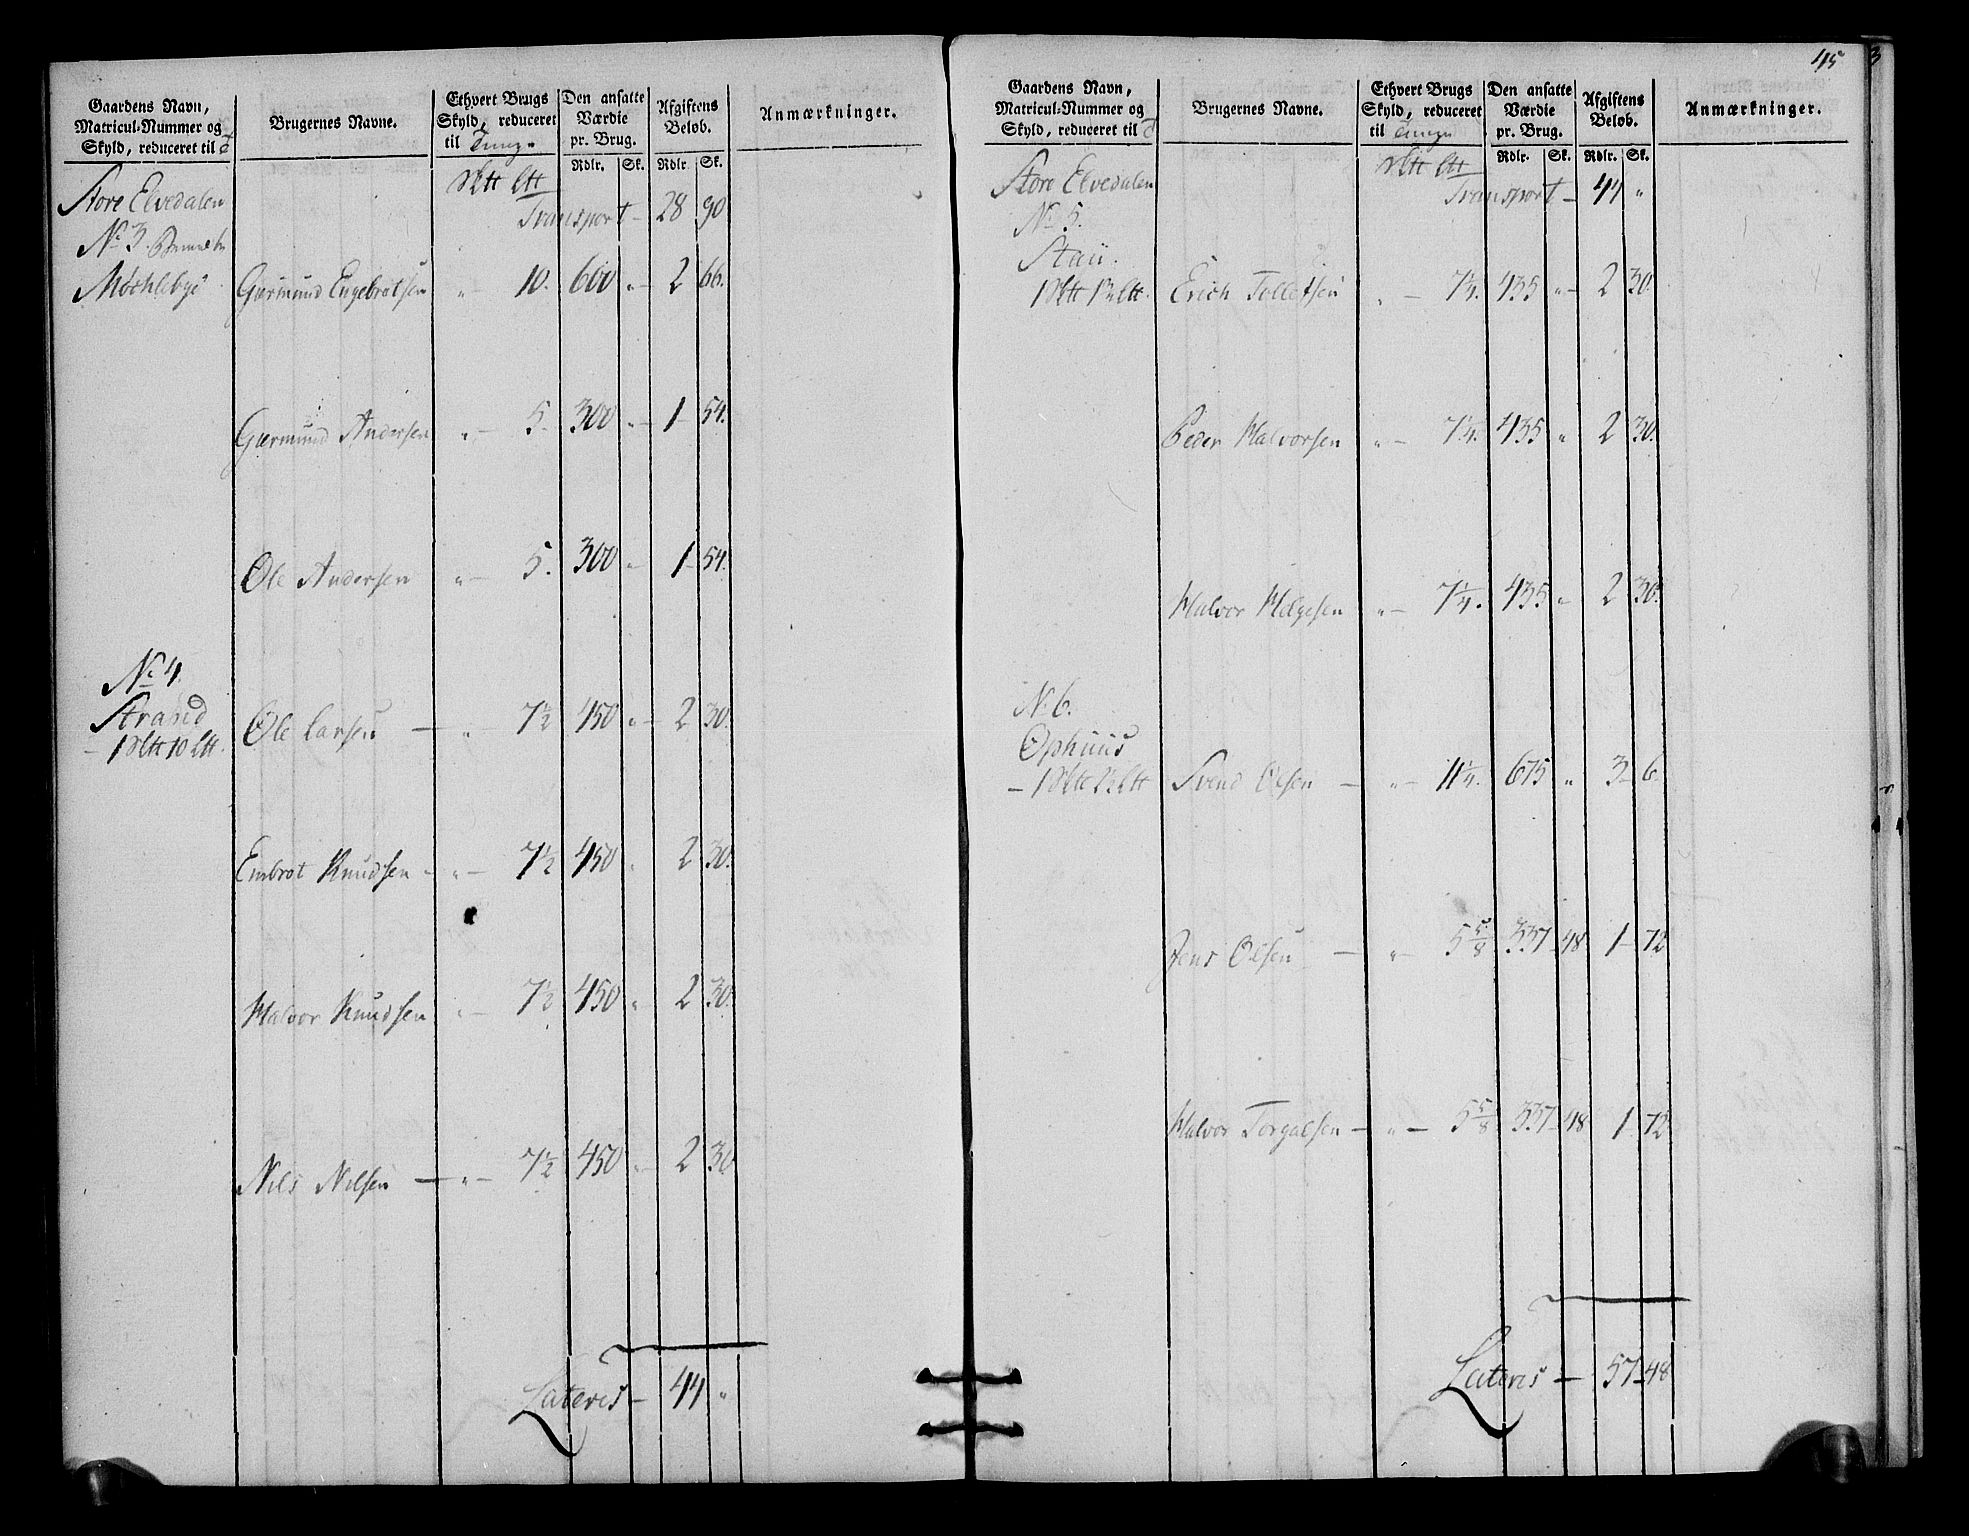 Gaardens Navn, Matricul-Nummer og Skyld, reduceret til
Brugernes Navne.
Ethvert Brugs Skyld, reduceret til Tunge
Den ansatte Værdie pr. Brug.
Afgiftens Beløb.
Anmærkninger.
Rdlr. Sk. Rdlr. Sk.
Store Elvedalen
Transport – 28 90
No 3
Møchlebye Gurmund Engebretsen " 10. 600 " 2 66.
Gurmund Andersen " 5. 300 " 1 54.
Ole Andersen " 5. 300 " 1 54.
No 4.
Strand
Ole Larsen – " 7½ 450 " 2 30.
– 1 10
Embret Knudsen – " 7½ 450 " 2 30.
Halvor Knudsen " 7½ 450 " 2 30.
Nils Nilsen – " 7½ 450 " 2 30
Lateris – 44 "
45
Gaardens Navn, Matricul-Nummer og Skyld, reduceret til
Brugernes Navne.
Ethvert Brugs Skyld, reduceret til Tunge
Den ansatte Værdie pr. Brug.
Afgiftens Beløb.
Anmærkninger.
Rdlr. Sk. Rdlr. Sk.
Store Elvedalen
Transport – 44 "
No 5.
Staii.
Erich Tollefsen " – 7¼. 435 " 2 30.
Peder Halvorsen " – 7¼. 435 " 2 30.
Halvor Helgesen " – 7¼. 435 " 2 30.
No 6.
Ophuus
Svend Olsen – " – 11¼. 675 " 3 6.
Jens Olsen – " – 5⅝ 337 48 1 72
Halvor Torgalsen – " – 5⅝ 337 48 1 72
Lateris – 57 48